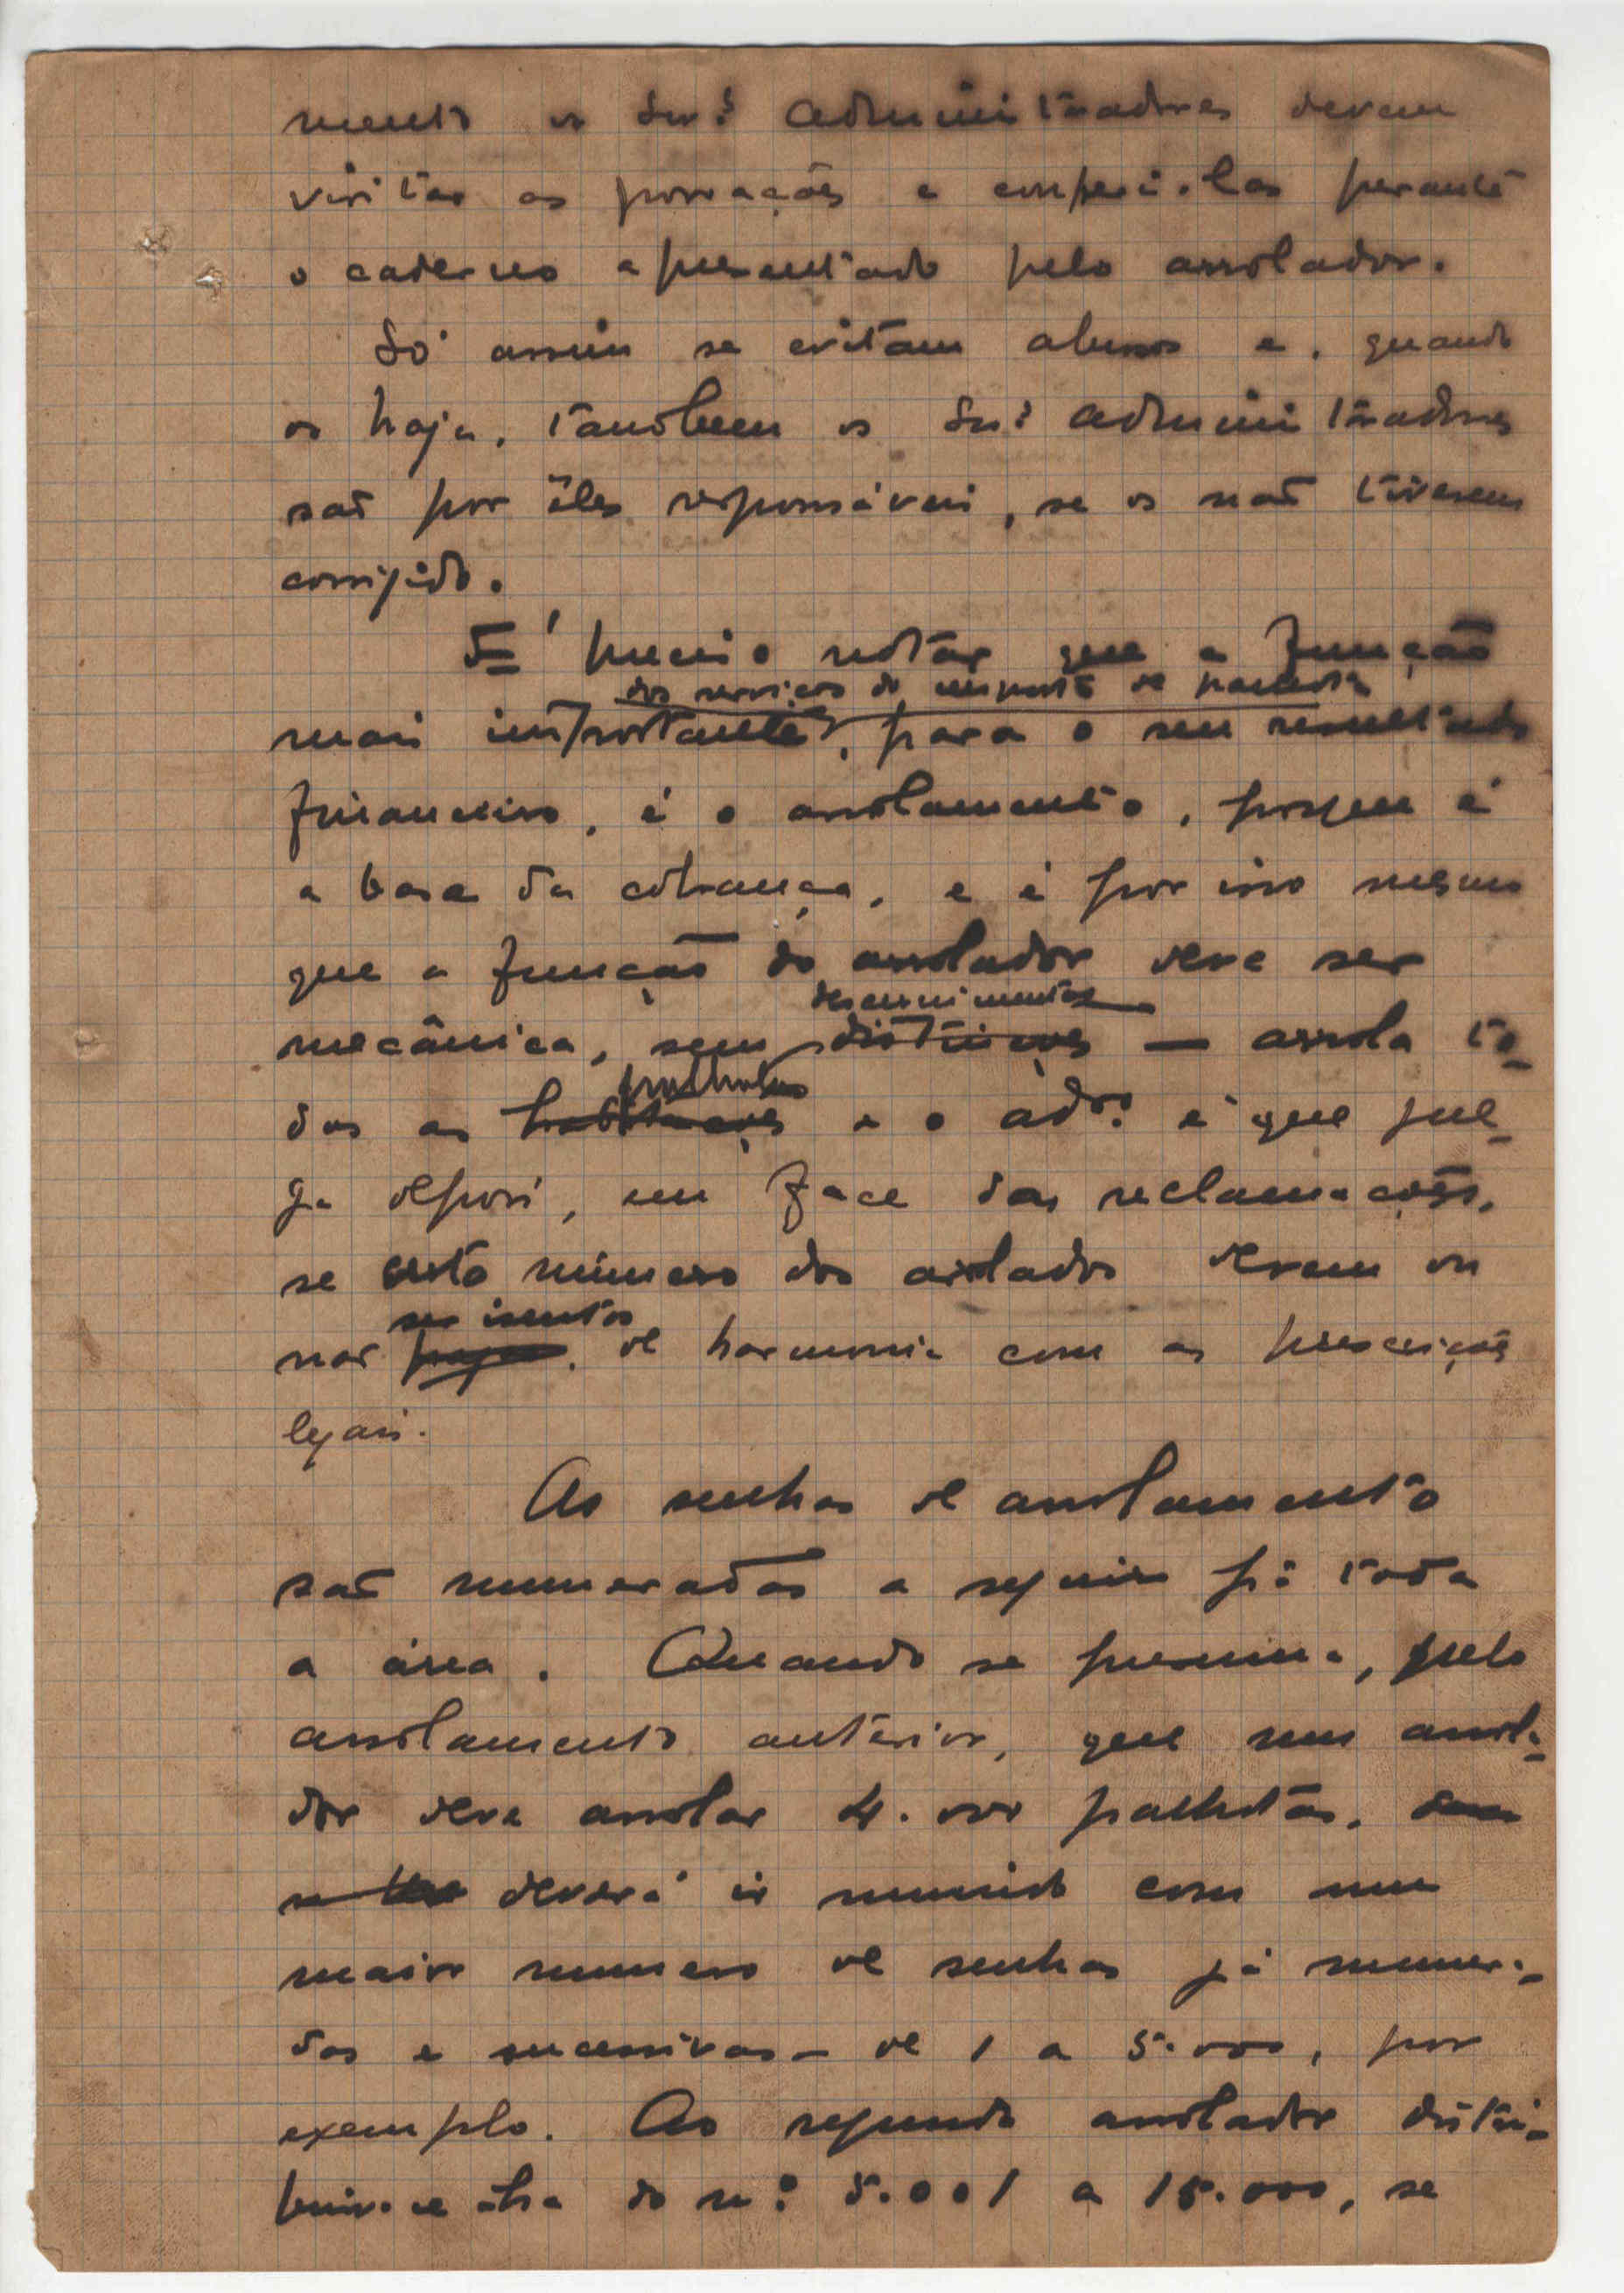 mento os Snrs administradores devem
visitar as povoações e conferi-las perante
o caderno apresentado pelo arrolador.
Só assim se evitam abusos e, quando
os haja, tambem os Snrs administradores
são por êles responsáveis, se os não tiverem
corrigido.
E' preciso notar que a função
dos serviços do imposto de palhota
mais importante, para o seu resultado
financeiro, é o arrolamento, porque é
a base da cobrança, e é por isso mesmo
que a função do arrolador deve ser
descernimentos
mecânica, sem distinções — arrola to-
palhotas
das as habitações e o admor é que jul-
ga depois, em face das reclamações,
se certo número dos arrolados devem ou
ser isentos
não pagar, de harmonia com as prescrições
legais.
As senhas de arrolamento
são numeradas a seguir pa toda
a área. Quando se presuma, pelo
arrolamento anterior, que um arrola-
dor deve arrolar 4.000 palhotas,
deverá ir munido com um
maior numero de senhas já numera-
das e sucessivas – de 1 a 5.000, por
exemplo. Ao segundo arrolador distri-
buir-se-á do nº 5.001 a 15.000, se